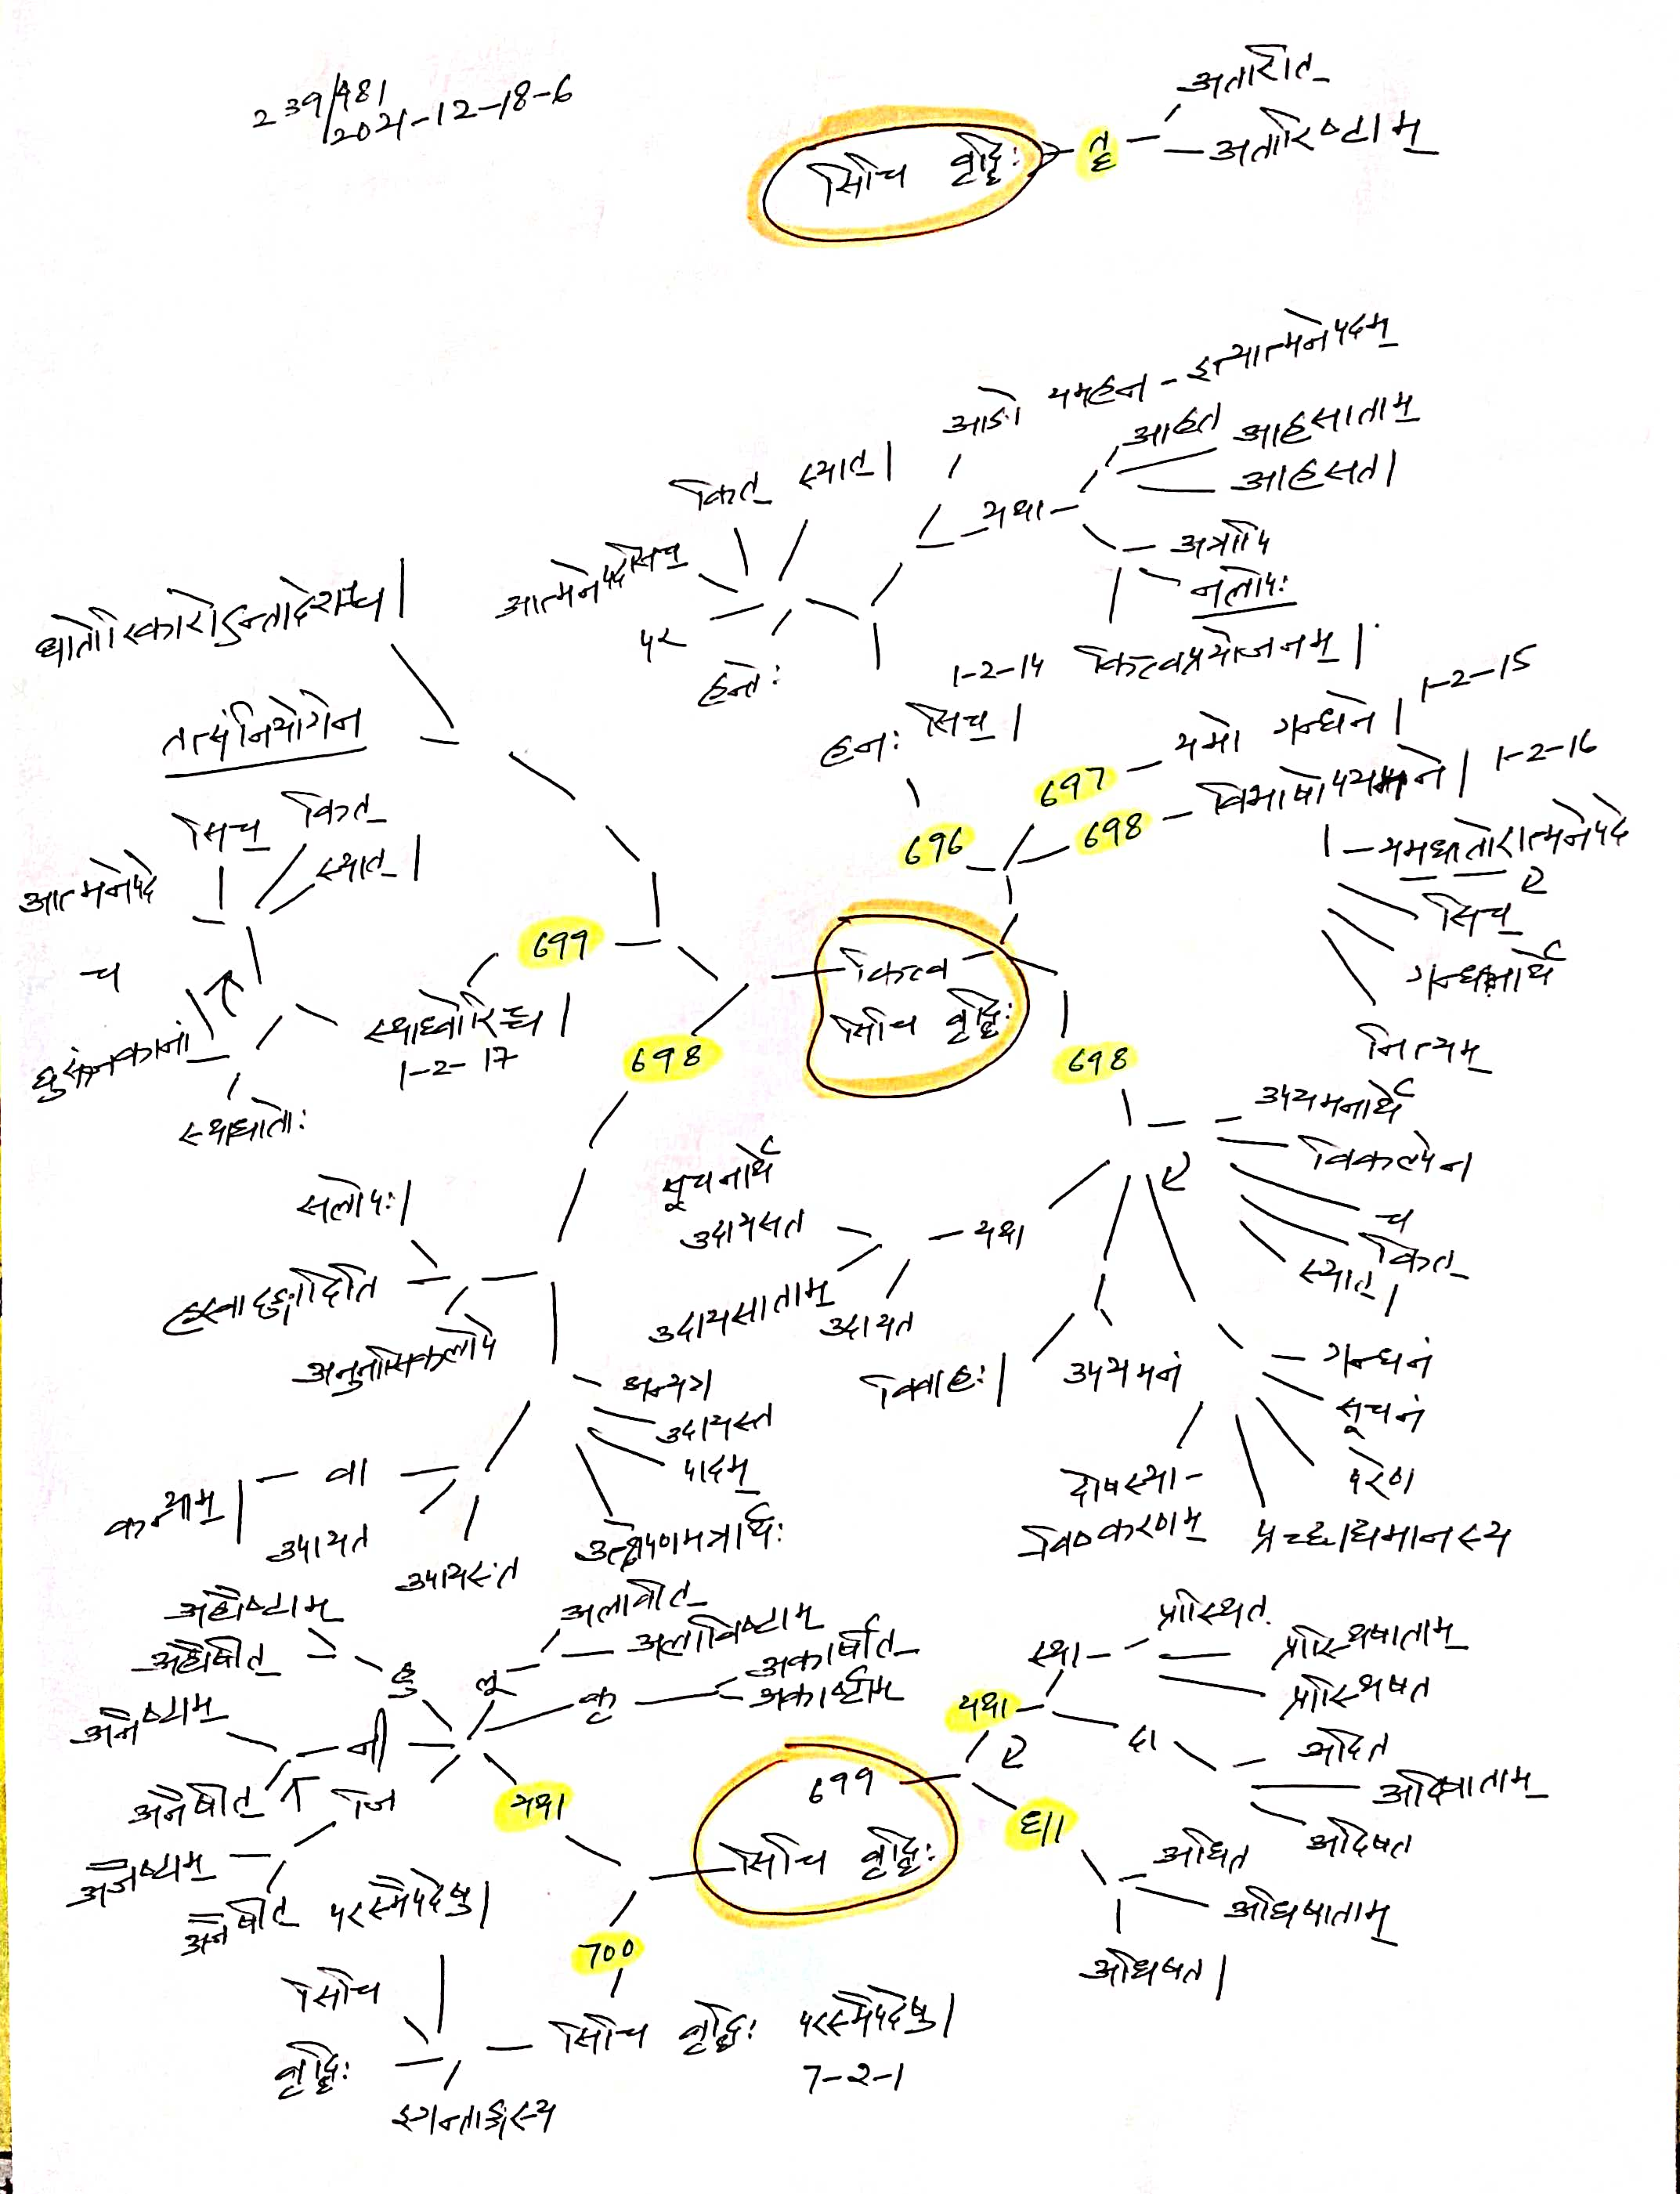 239/481
2021-12-18-6
सिचि वृद्धिः
तॄ
अतारीत्
अतारिष्टाम्
आङो यमहन - इत्यात्मनेपदम्
आहत
आहसाताम्
आहसत।
यथा
अत्रापि
नलोपः
कित्वप्रयोजनम्।
कित् स्यात्।
आत्मनेपदे सिच्
पर
हन्तेः
1-2-14
हनः सिच्।
696
697
यमो गन्धने। 1-2-15
698
विभाषोपयमने। 1-2-16
यमधातोरात्मनेपदे
सिच्
गन्धनार्थे
नित्यम्
धातोरिकारोऽन्तादेशश्च।
तत्संनियोगेन
सिच् कित्
स्यात्।
आत्मनेपदे
च
घुसंज्ञकानां
स्थाधातोः
स्थाघ्वोरिच्च।
1-2-17
699
कित्व
सिचि वृद्धिः
698
698
उपयमनार्थे
विकल्पेन
च
कित्
स्यात्।
सूचनार्थे
उदायसत
यथा
उदायसाताम्
उदायत
विवाहः।
उपयमनं
गन्धनं
सूचनं
परेण
प्रच्छाद्यमानस्य
दोषस्या-
विष्करणम्
सलोपः।
ह्रस्वादङ्गादिति
अनुनासिकलोपे
अन्यत्र
उदायंस्त
पादम्
उत्क्षेपणमत्रार्थः
वा
कन्याम्।
उपायत
उपायंस्त
अहौष्टाम्
अहौषीत्
हु
अलावीत्
अलाविष्टाम्
लू
अकार्षीत्
अकार्ष्टाम्
कृ
अनैष्टाम्
नी
अनैषीत्
जि
अजैष्टाम्
अजैषीत्
यथा
699
सिचि वृद्धिः
यथा
स्था
प्रास्थित
प्रास्थिषाताम्
प्रास्थिषत
दा
अदित
अदिषाताम्
अदिषत
धा
अधित
अधिषाताम्
अधिषत।
700
परस्मैपदेषु।
सिचि
वृद्धिः
इगन्ताङ्गस्य
सिचि वृद्धिः परस्मैपदेषु।
7-2-1